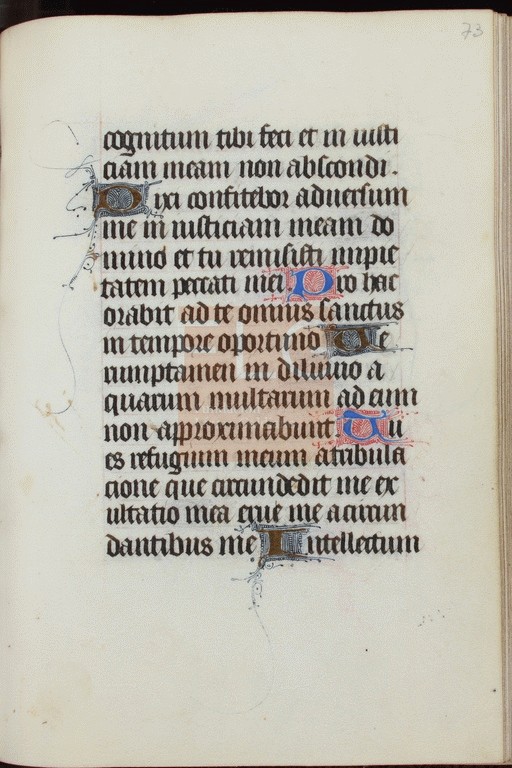 73
cognitum tibi feci et in iusti
ciam meam non abscondi.
Dixi confitebor aduersum
me in iusticiam meam do
mino et tu remisisti impie
tatem peccati mei. Pro hac
orabit ad te omnis sanctus
in tempore oportuno Ve
rumptamen in diluuio a
quarum multarum ad eum
non approximabunt. Tu
es refugium meum a tribula
cione que circundedit me ex
ultatio mea erue me a circun
dantibus me Intellectum